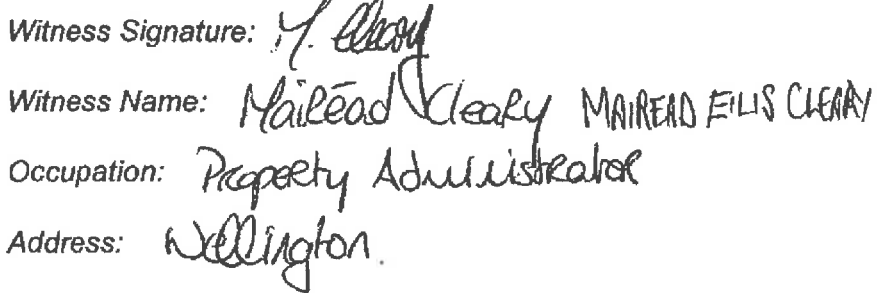 Witness Signature: M. Cleary
Witness Name: Mairéad Cleary MAIREAD EILIS CLEARY
Occupation: Property Administrator
Address: Wellington.